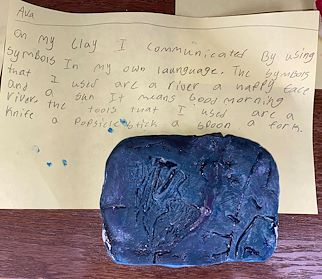 Ava
On my clay I communicated By using
symbols In my own launguage. The symbols
that I used are a river a happy face
and a sun It means Good morning
river. the tools that I used are a
knife a popsicle stick a spoon a fork.